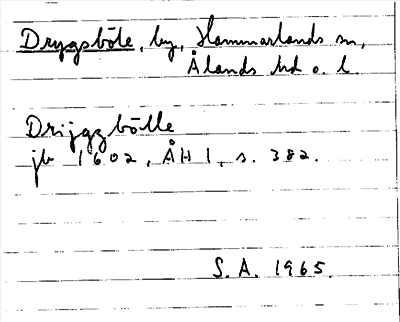 Dryggsböle, by, Hammarlands sn,
Ålands hd o. l.
Drijggbölle
jb 1602, ÅH 1, s. 382.
S. A. 1965.